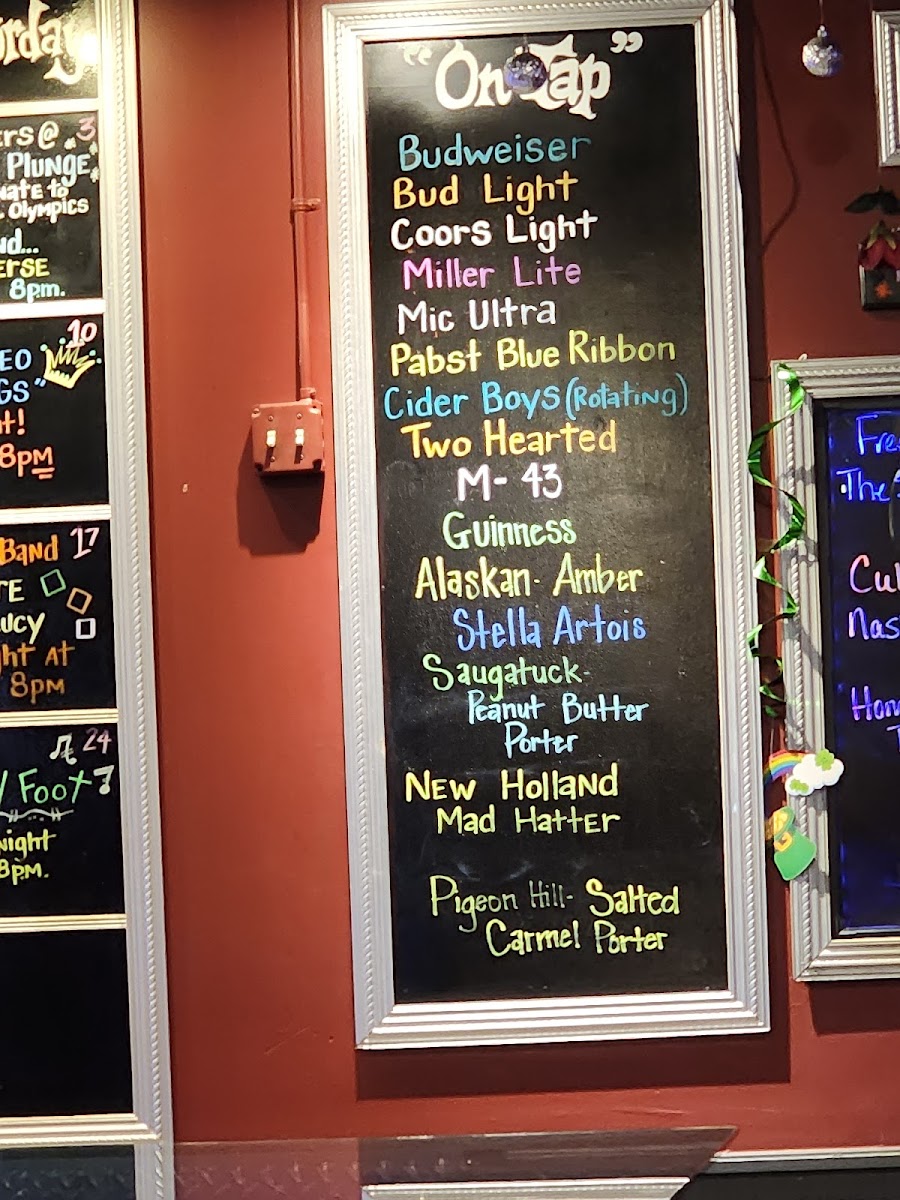 "On Tap"
Budweiser
Bud Light
Coors Light
Miller Lite
Mic Ultra
Pabst Blue Ribbon
Cider Boys (Rotating)
Two Hearted
M-43
Guinness
Alaskan- Amber
Stella Artois
Saugatuck-
Peanut Butter
Porter
New Holland
Mad Hatter
Pigeon Hill- Salted
Carmel Porter
@ 3
Plunge
to
Olympics
8pm.
10
8pm
Band 17
At
8pm
24
Foot
8pm.